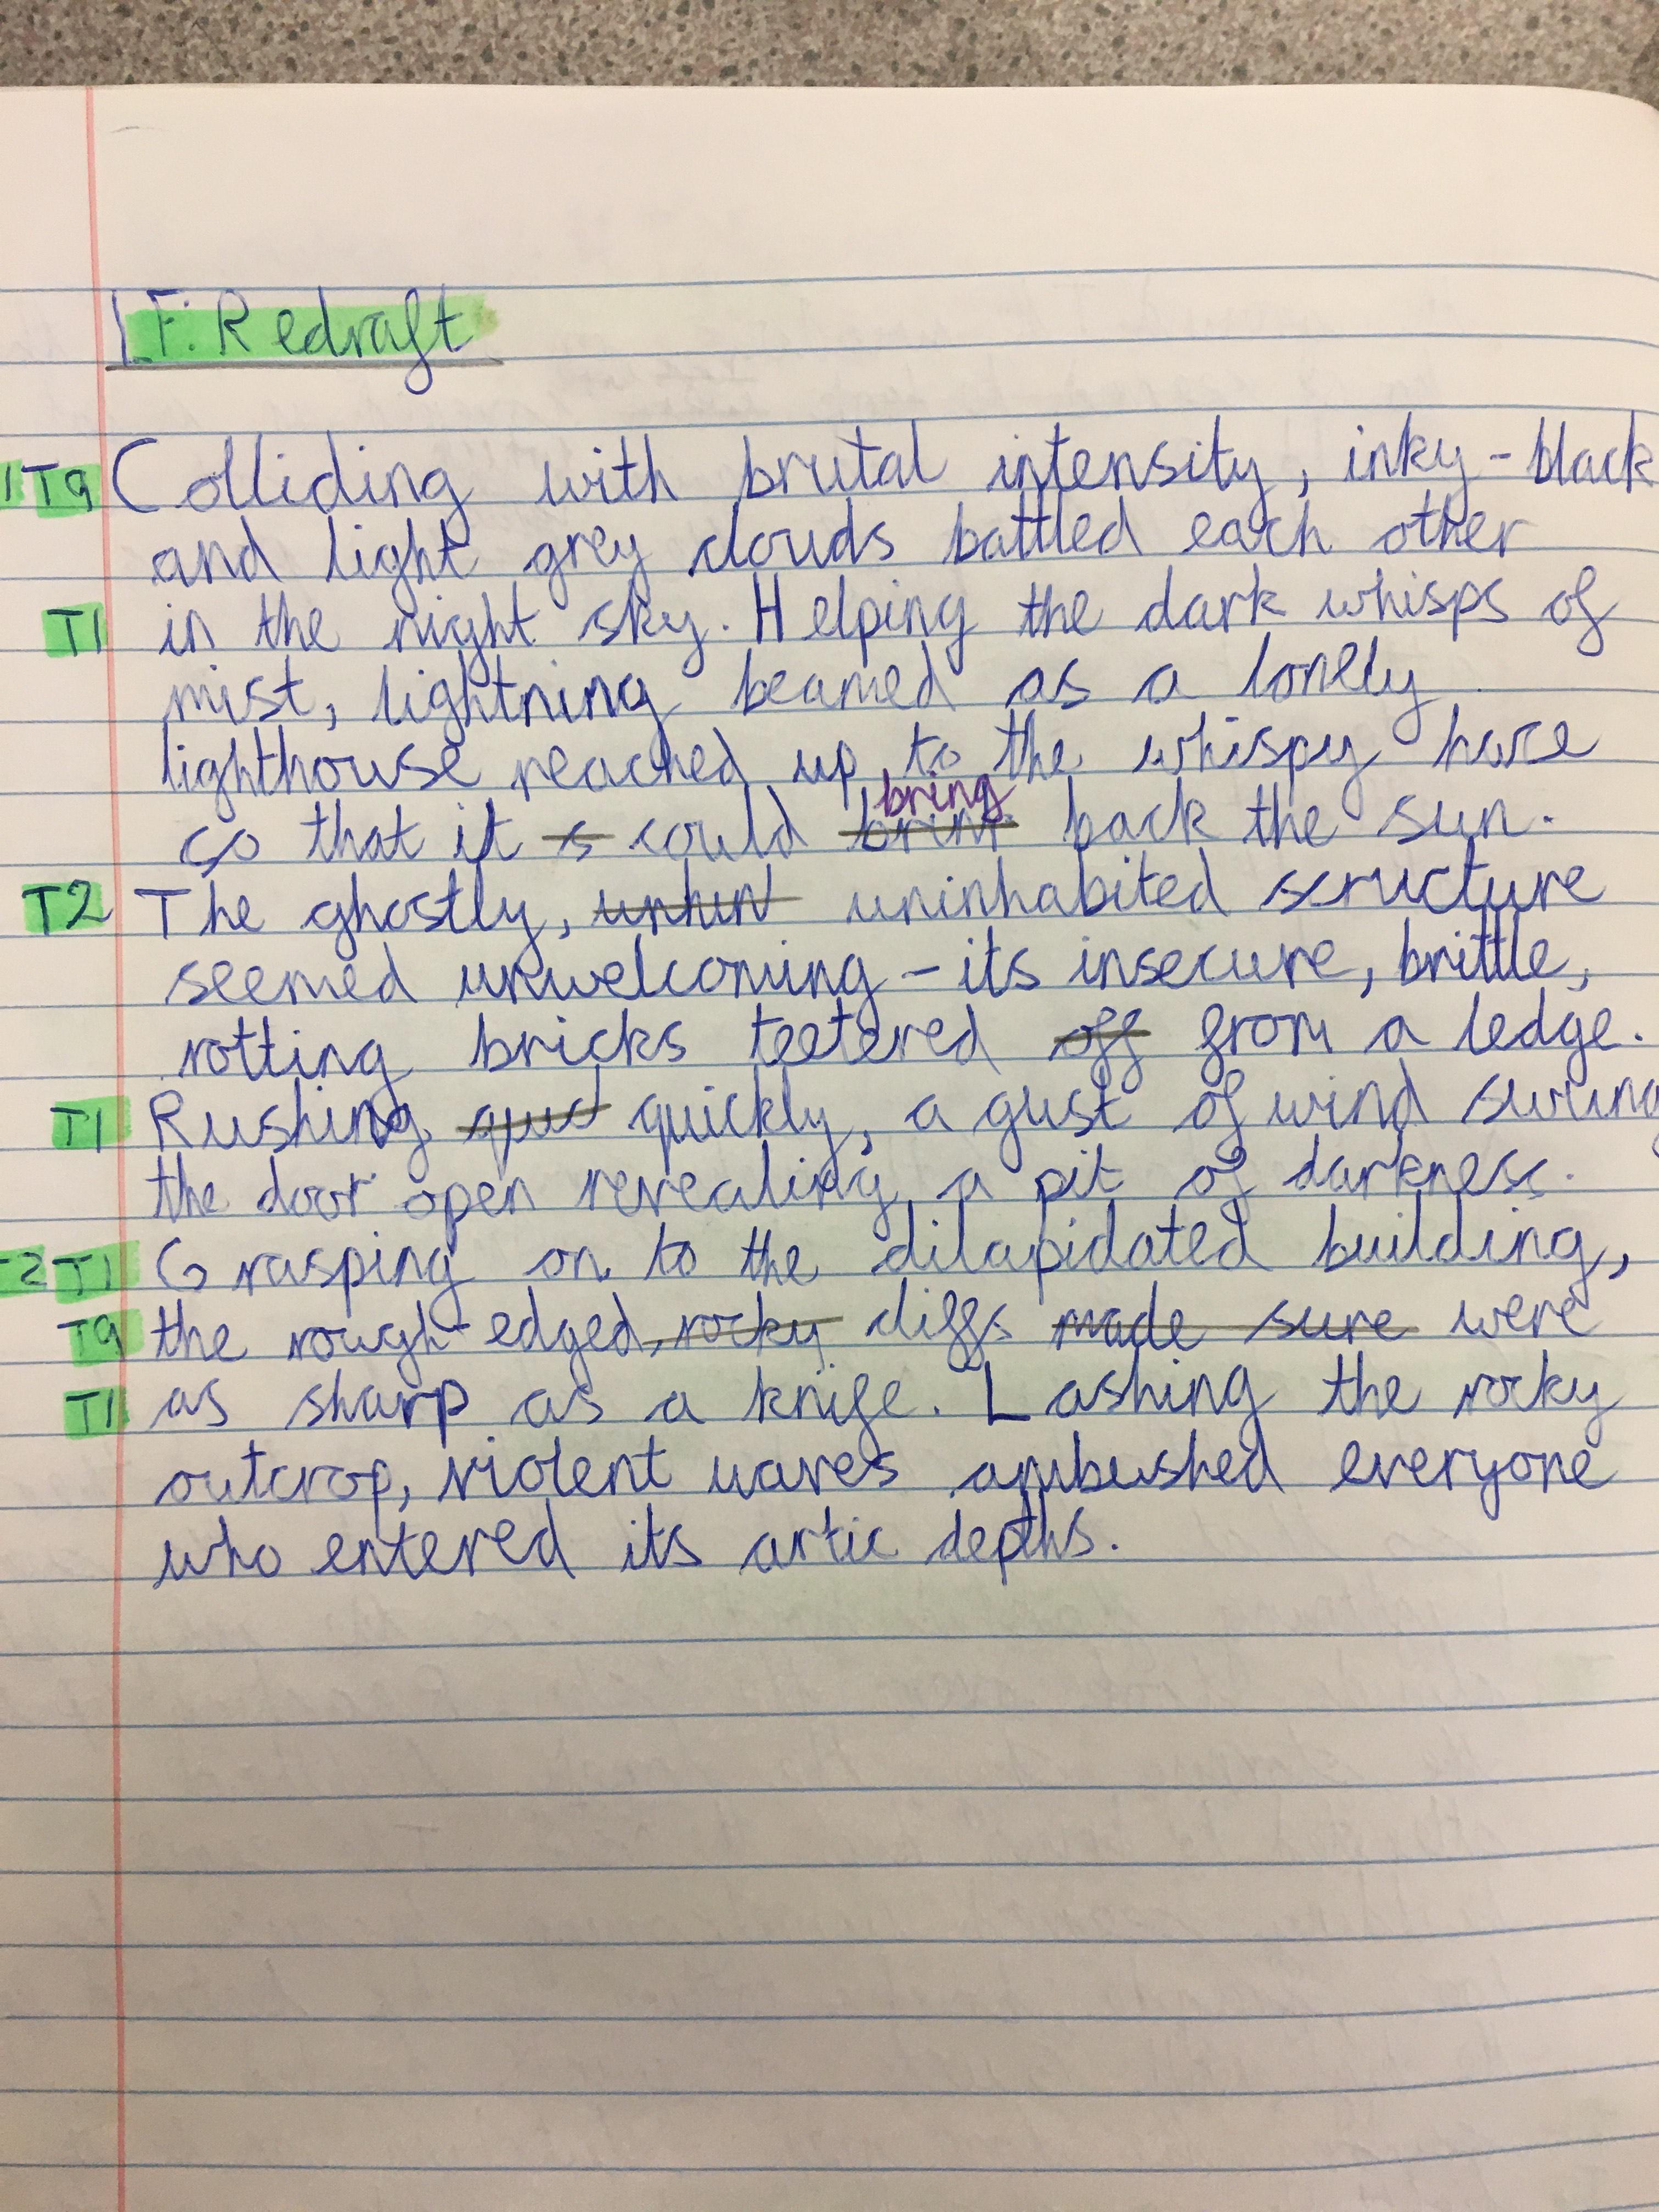 LF: Redraft
1 T9 Colliding with brutal intensity, inky-black
and light grey clouds battled each other
T1 in the night sky. Helping the dark whisps of
mist, lightning beamed as a lonely
lighthouse reached up to the whispy
bring
so that it s could brint back the sun.
T2 The ghostly, uninhabited structure
seemed unwelcoming - its insecure, brittle,
rotting bricks teetered off from a ledge.
T1 Rushing quickly, a gust of wind swung
the door open revealing a pit of darkness.
2 T1 Grasping on to the dilapidated building,
T9 the rough-edged, rocky cliffs made sure were
T1 as sharp as a knife. Lashing the rocky
outcrop, violent waves ambushed everyone
who entered its artic depths.